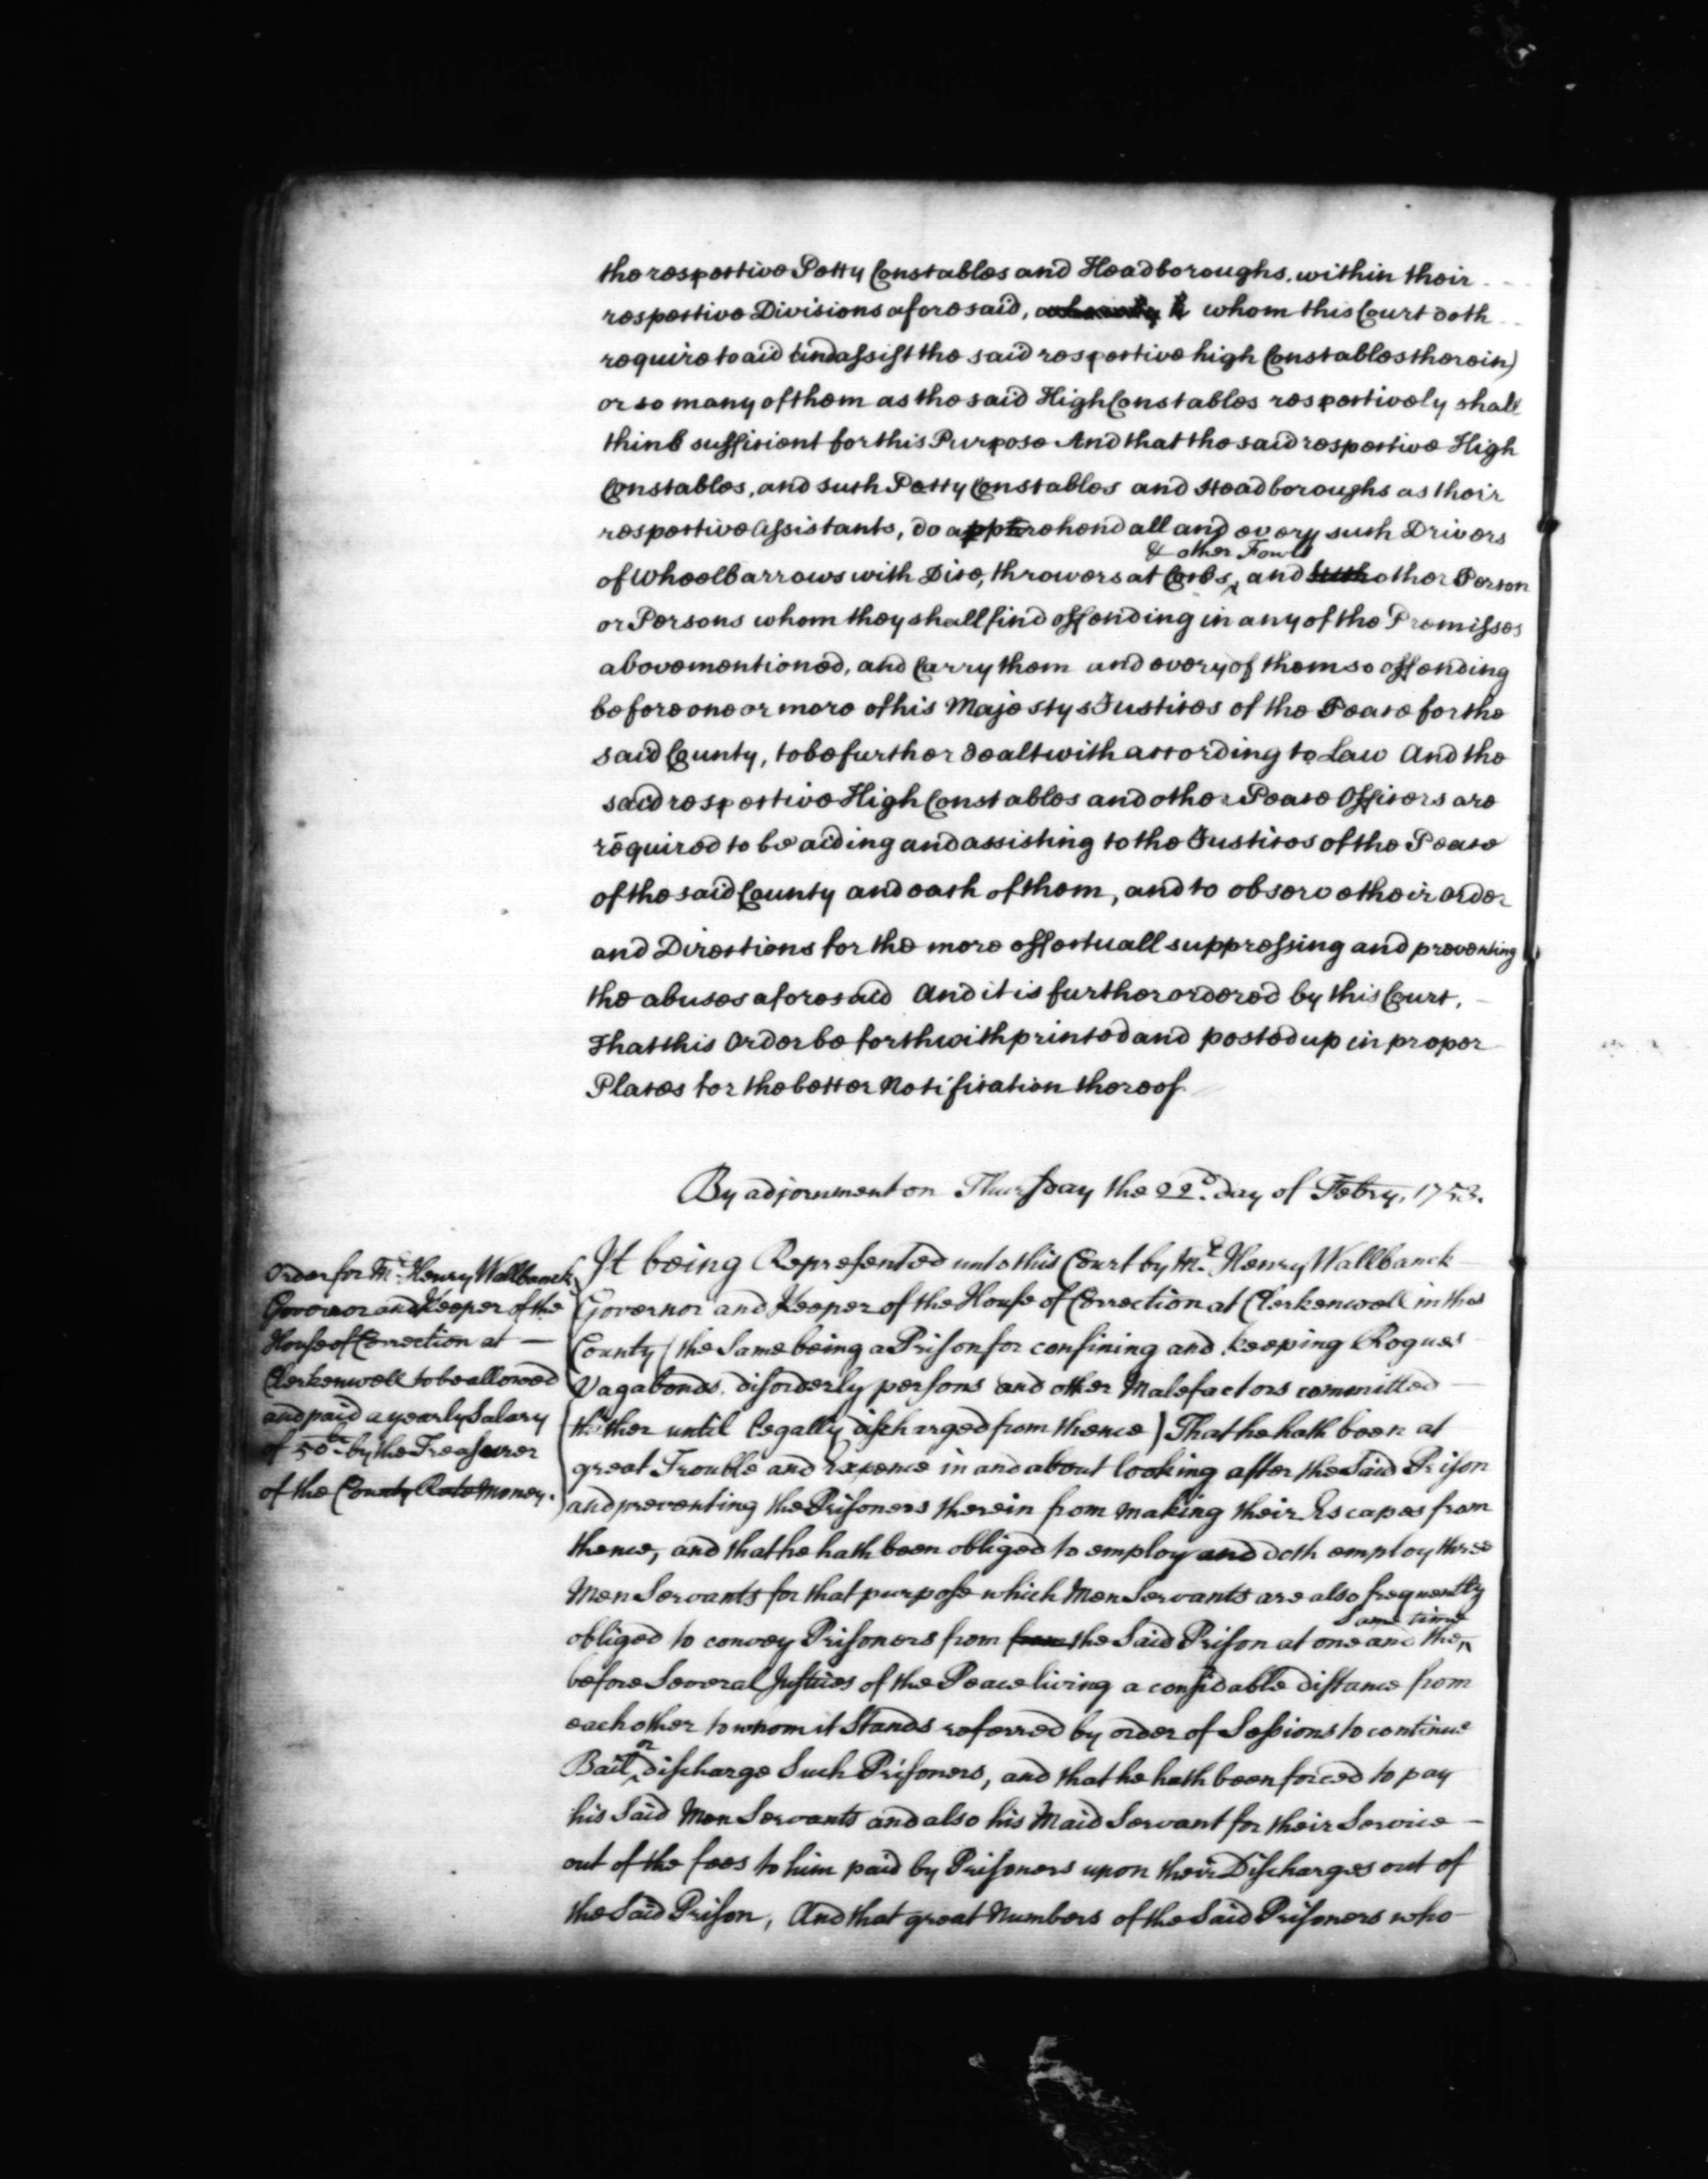 the respective Petty Constables and Headboroughs, within their
respective Divisions aforesaid, whom this Court doth
require to aid and assist the said respective high Constables therein)
or so many of them as the said High Constables respectively shall
think sufficient for this Purpose And that the said respective High
Constables, and such Petty Constables and Headboroughs as their
respective Assistants, do apprehend all and every such Drivers
& other Fowls
of Wheelbarrows with Dice, throwers at Cocks, and such other Person
or Persons whom they shall find offending in any of the Premisses
abovementioned, and Carry them and every of them so offending
before one or more of his Majestys Justices of the Peace for the
said County, to be further dealt with according to Law And the
said respective High Constables and other Peace Officers are
required to be aiding and assisting to the Justices of the Peace
of the said County and each of them, and to observe their order
and Directions for the more effectuall suppressing and preventing
the abuses aforesaid And it is further ordered by this Court,
That this Order be forthwith printed and posted up in proper
Places for the better Notification thereof.
By adjornment on Thursday the 22d. day of Febry, 1753.
Order for Mr. Henry Wallbanck
Governor and Keeper of the
House of Correction at —
Clerkenwell to be allowed
and paid a yearly Salary
of 50 by the Treasurer
of the County Rate Money.
It being Represented unto this Court by Mr. Henry Wallbanck
Governor and Keeper of the House of Correction at Clerkenwell in this
County (the Same being a Prison for confining and keeping Rogues
Vagabonds, disorderly persons and other Malefactors committed
thither until legally discharged from thence) That he hath been at
great Trouble and Expence in and about looking after the Said Prison
and preventing the Prisoners therein from making their Escapes from
thence, and that he hath been obliged to employ and doth employ three
Men Servants for that purpose which Men Servants are also frequently
Same time
obliged to convey Prisoners from from the Said Prison at one and the
before Several Justices of the Peace living a considable distance from
each other to whom it Stands referred by order of Sessions to continue
or
Bail discharge Such Prisoners, and that he hath been forced to pay
his Said Men Servants and also his Maid Servant for their Service —
out of the fees to him paid by Prisoners upon their Discharges out of
the Said Prison, And that great Numbers of the Said Prisoners who